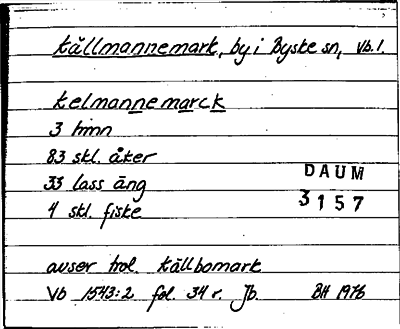 Källmannemark, by i Byske sn, Vb.l.
Kelmannemarck
3 hmn
83 skl. åker
33 lass äng
4 skl. fiske
DAUM
3157
avser trol. Källbomark
Vb 1543:2 fol. 34 r. Jb. BH 1976